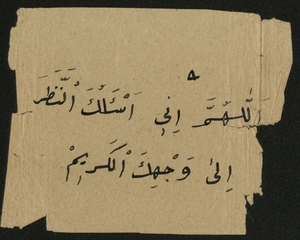 اَللّٰهُمَّ اِنِّي اَسْئَلُكَ الْنَّظَرَ
اِلىٰ وَجْهِكَ الْكَرِيمْ